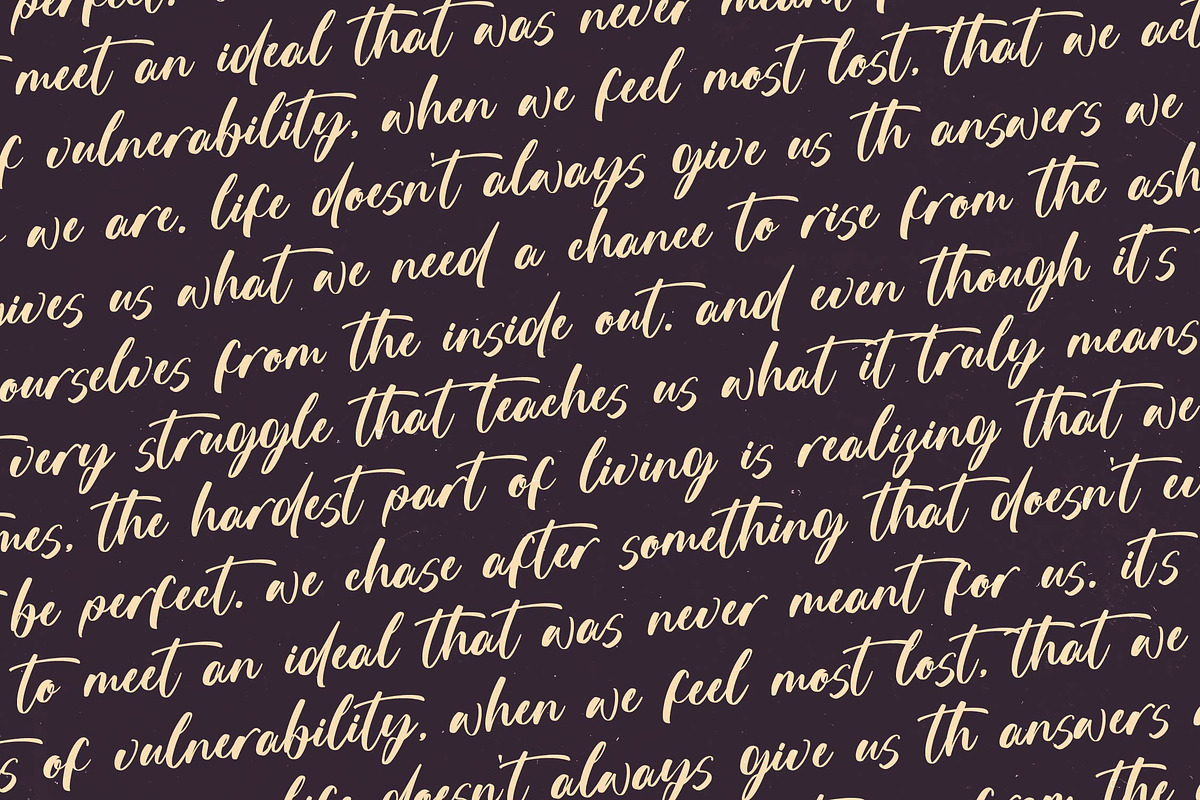 perfect.
meet an ideal that was never meant
f vulnerability, when we feel most lost, that we act
we are. life doesn't always give us th answers we
gives us what we need a chance to rise from the ash
ourselves from the inside out. and even though it's
very struggle that teaches us what it truly means
mes, the hardest part of living is realizing that we
be perfect. we chase after something that doesn't
to meet an ideal that was never meant for us. it's
s of vulnerability, when we feel most lost, that we
life doesn't always give us th answers
from the